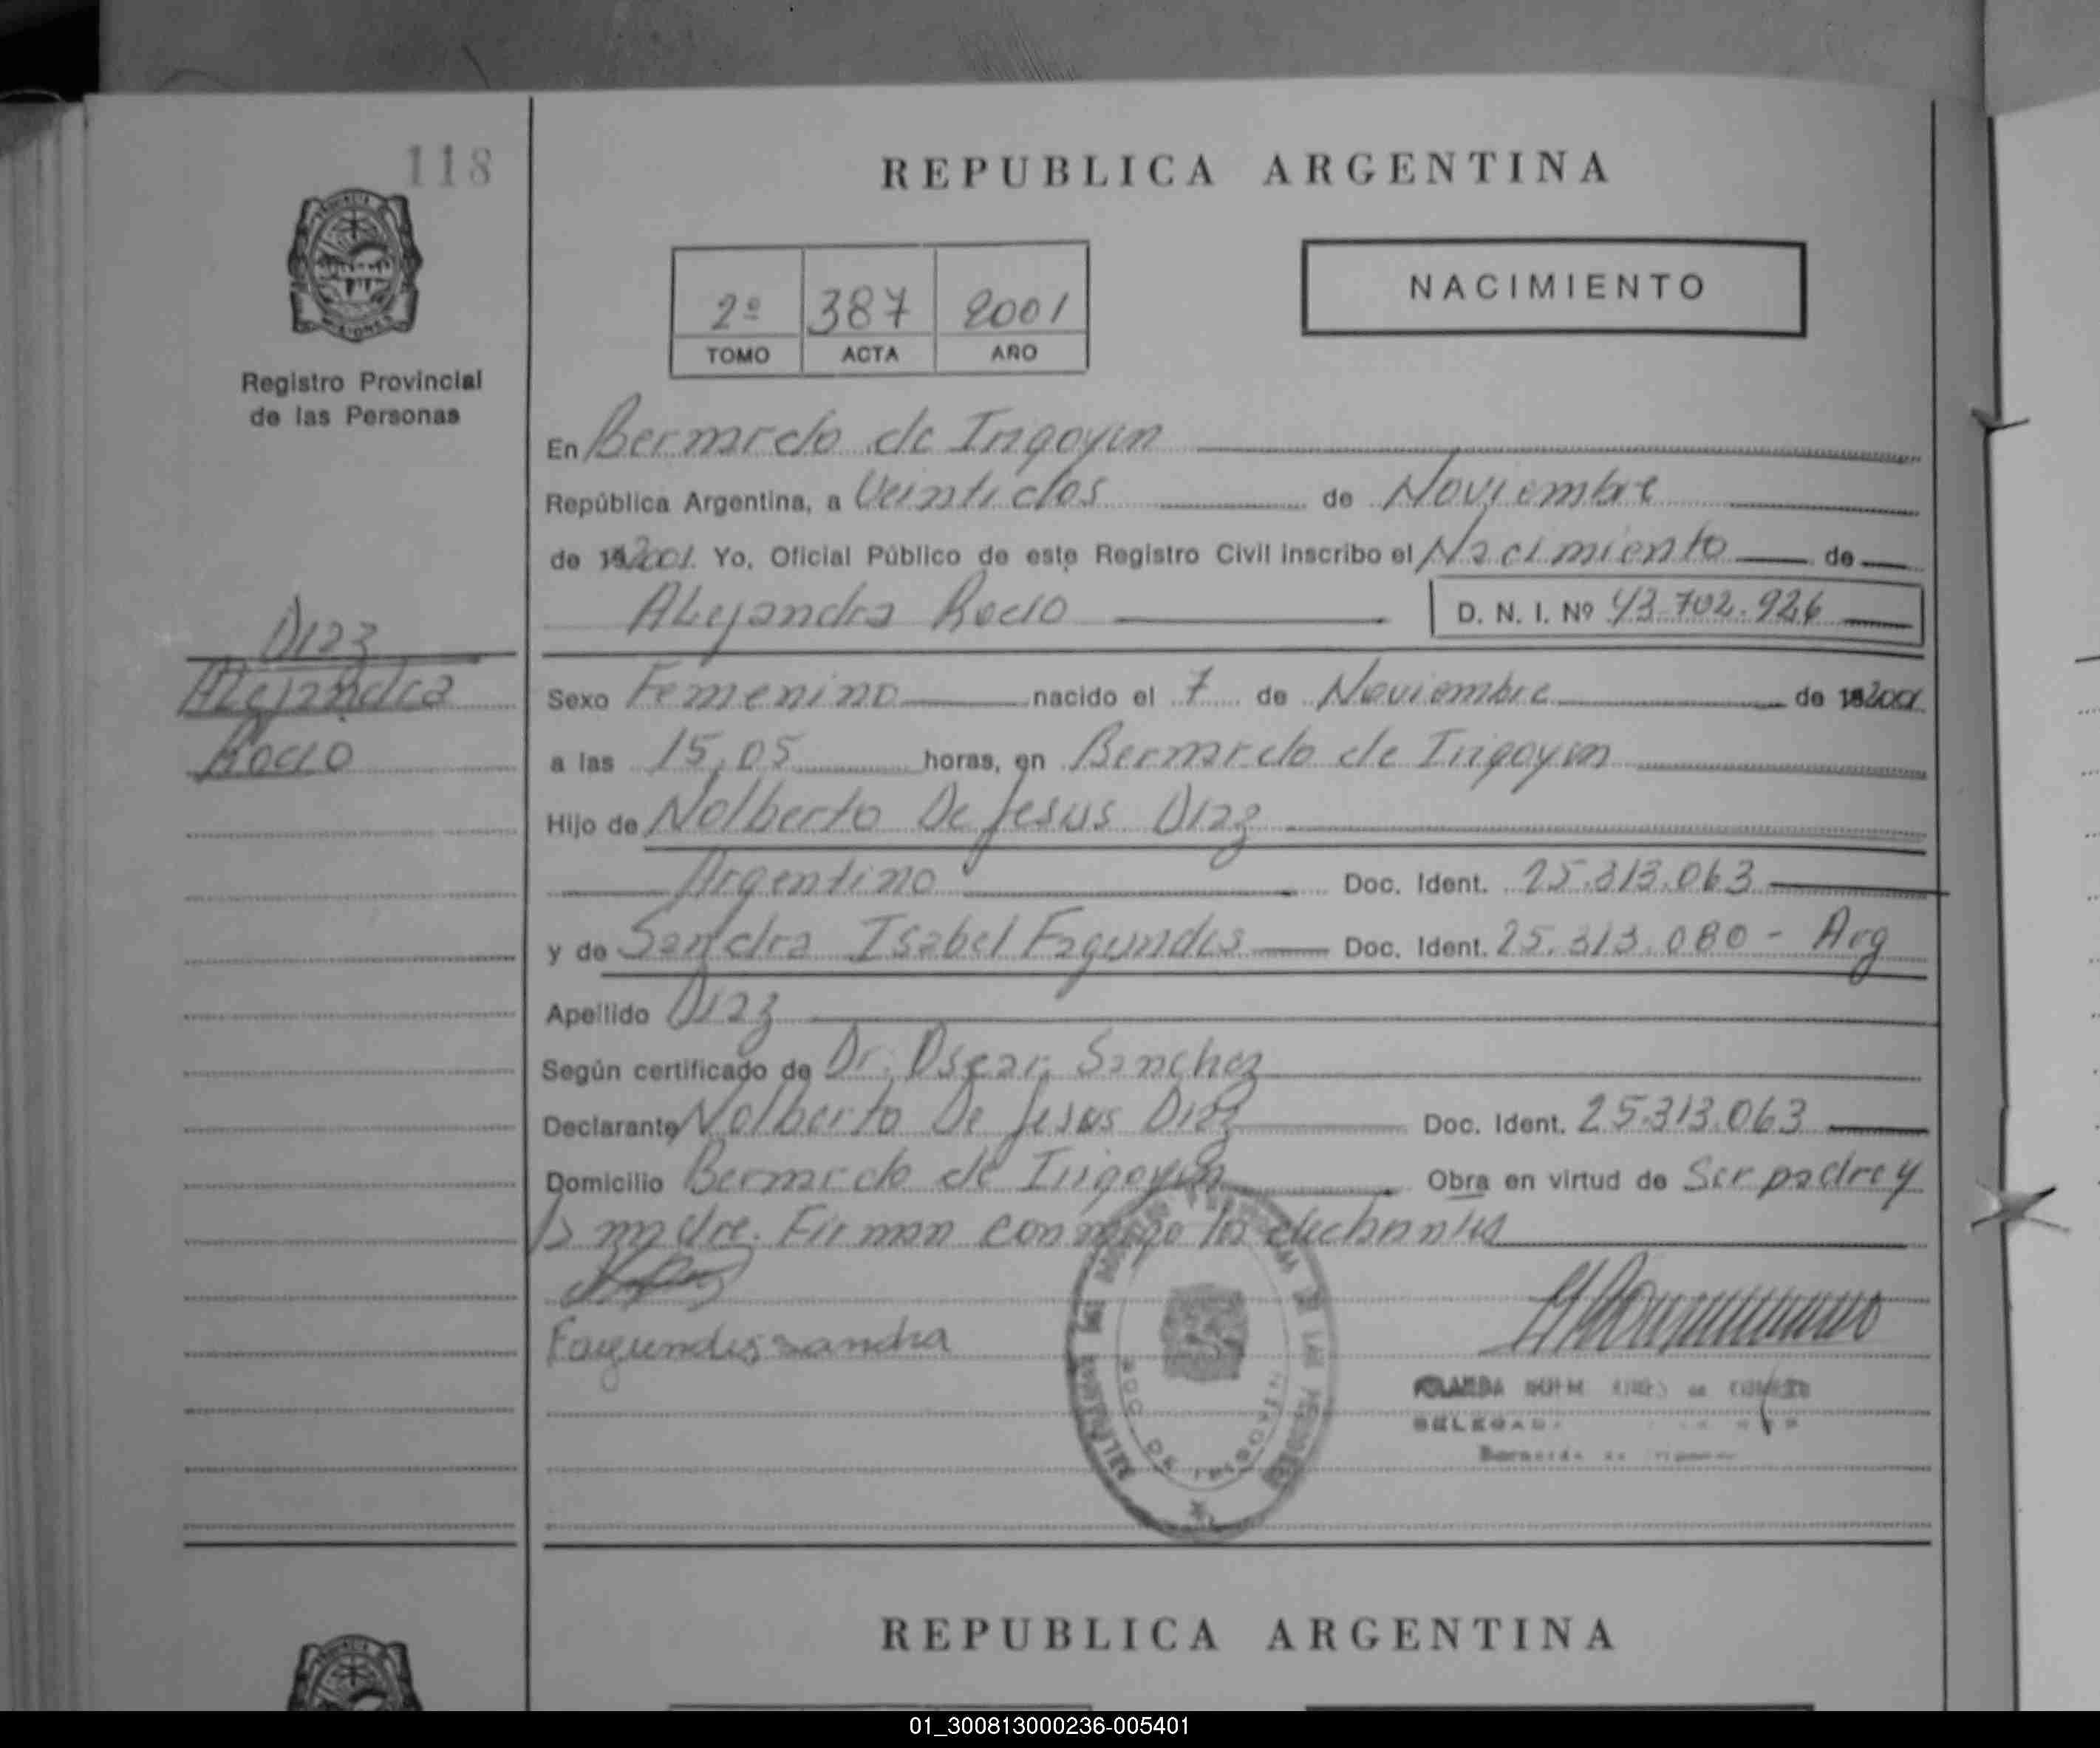 118
REPUBLICA ARGENTINA
NACIMIENTO
2º 387 2001
TOMO ACTA AÑO
Registro Provincial
de las Personas
En Bernardo de Irigoyen
República Argentina, a Veintidos de Noviembre
de 192001. Yo, Oficial Público de este Registro Civil inscribo el Nacimiento de
Alejandra Rocio D. N. I. Nº 43.702.926
Diaz
Alejandra
Rocio
Sexo Femenino nacido el 7 de Noviembre de 192001
a las 15,05 horas, en Bernardo de Irigoyen
Hijo de Nolberto De Jesus Diaz
Argentino Doc. Ident. 25.313.063
y de Sandra Isabel Fagundes Doc. Ident. 25.313.080 - Arg
Apellido Diaz
Según certificado de Dr. Oscar Sanchez
Declarante Nolberto De Jesus Diaz Doc. Ident. 25.313.063
Domicilio Bernardo de Irigoyen Obra en virtud de Ser padre y
la madre. Firman conmigo los
Fagundes Sandra
REPUBLICA ARGENTINA
01_300813000236-005401